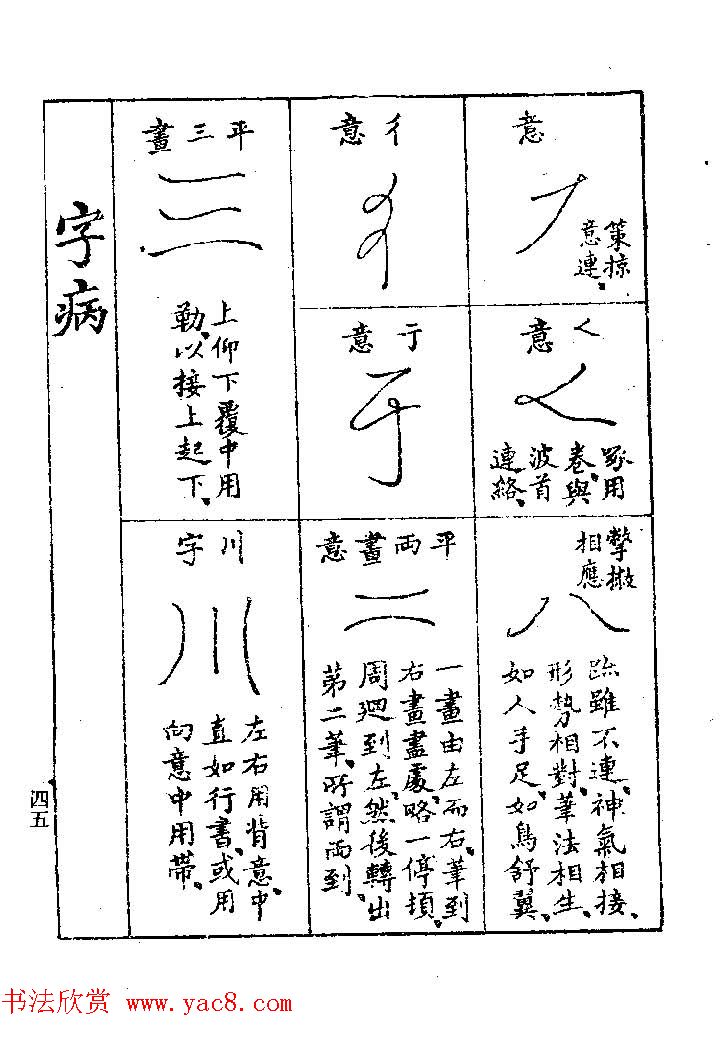 意
策掠
意連、
ㄑ意
啄用
卷與
波首
連絡、
相應
八
跡雖不連、神氣相接、
形勢相對、筆法相生、
如人手足、如鳥舒翼、
彳意
亍意
平兩畫意
二
一畫由左而右、筆到
右畫盡處、略一停頓、
周廻到左、然後轉出
第二筆、所謂兩到、
平三畫
三
上仰下覆中用
勒、以接上起下、
川字
川
左右用背意、中
直如行書、或用
向意中用帶、
字病
四五
书法欣赏 www.yac8.com